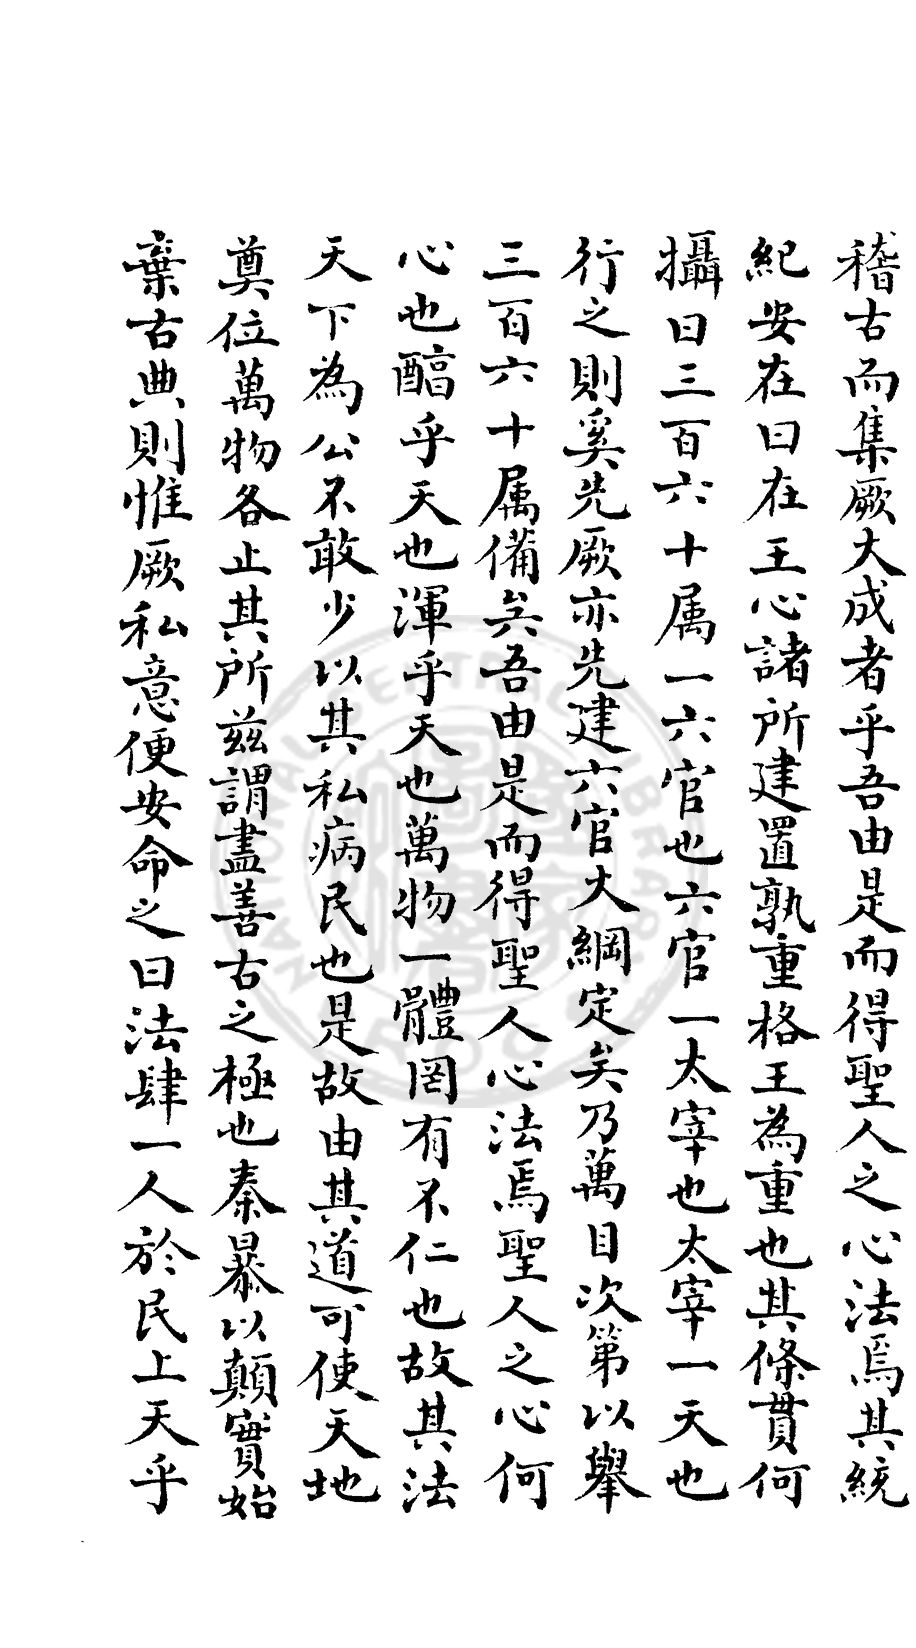 稽古而集厥大成者乎吾由是而得聖人之心法焉其統
紀安在曰在王心諸所建置孰重格王為重也其條貫何
攝曰三百六十属一六官也六官一太宰也太宰一天也
行之則奚先厥亦先建六官大綱定矣乃萬目次第以舉
三百六十属備矣吾由是而得聖人心法焉聖人之心何
心也醕乎天也渾乎天也萬物一體罔有不仁也故其法
天下為公不敢少以其私病民也是故由其道可使天地
奠位萬物各止其所茲謂盡善古之極也秦暴以顛實始
棄古典則惟厥私意便安命之曰法肆一人於民上天乎
NATIONAL CENTRAL LIBRARY R.O.C.